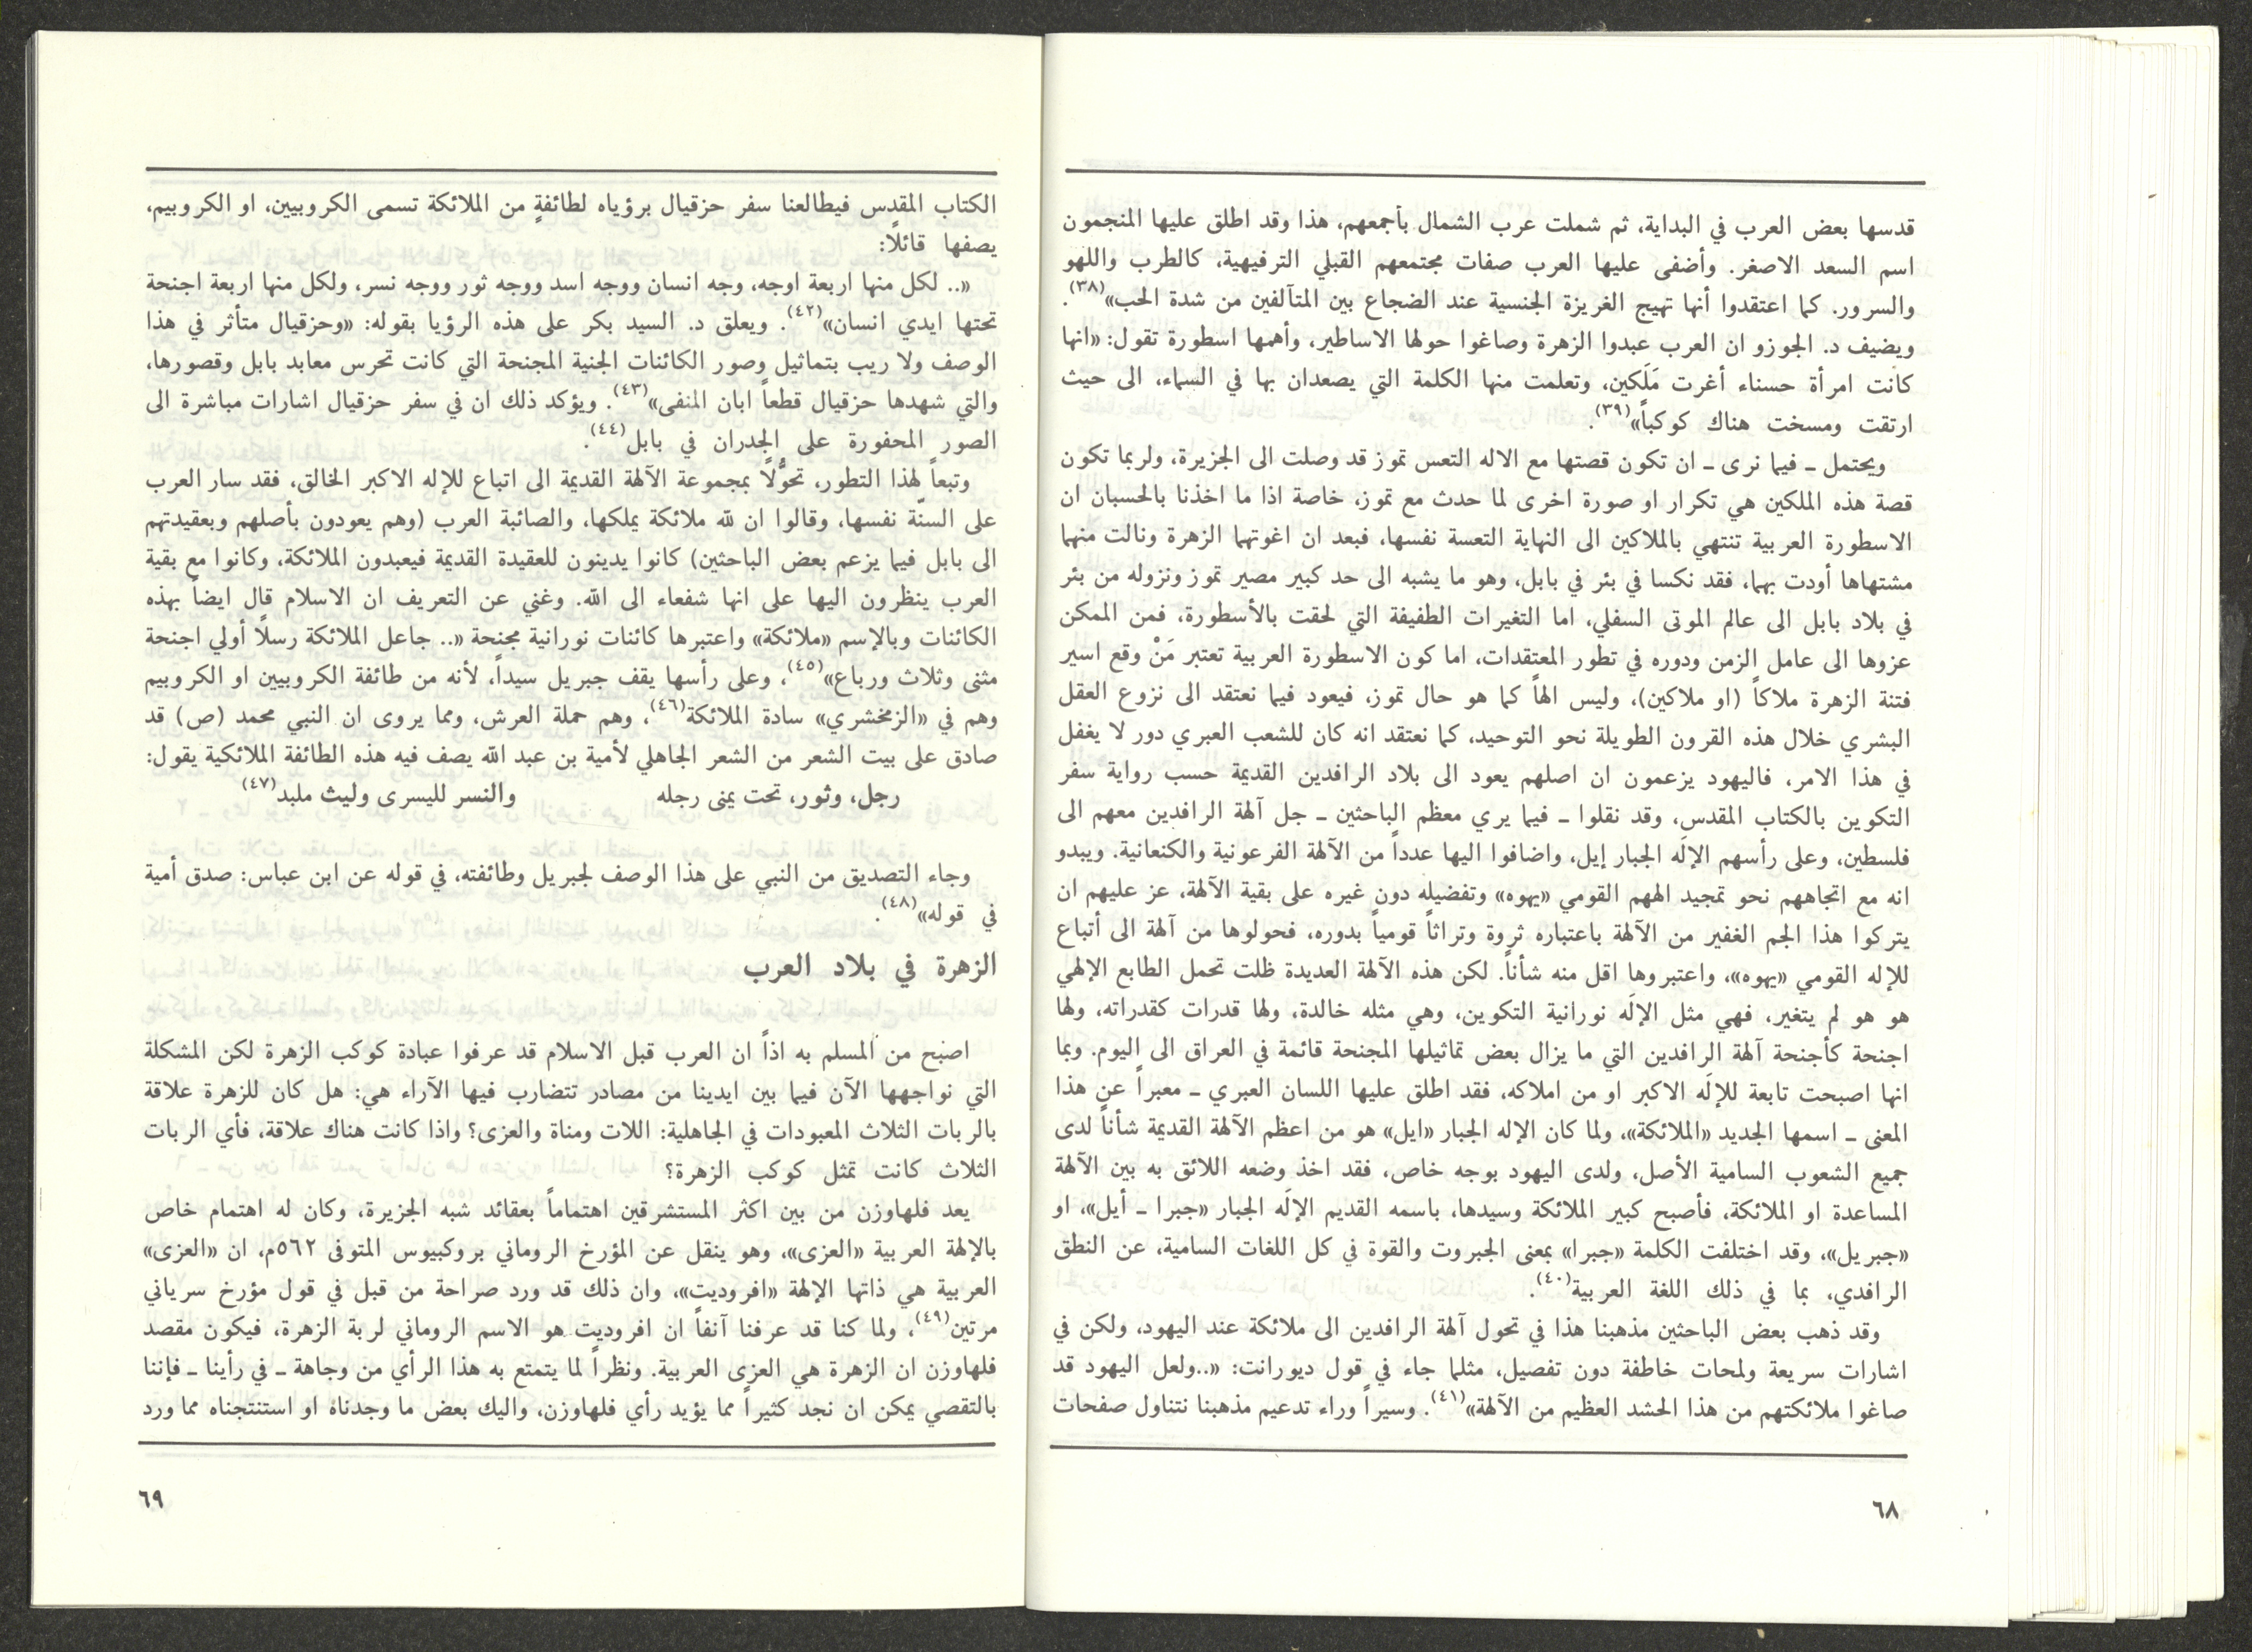 قدسها بعض العرب في البداية، ثم شملت عرب الشمال بأجمعهم، هذا وقد اطلق عليها المنجمون
اسم السعد الاصغر. وأضفى عليها العرب صفات مجتمعهم القبلي الترفيهية، كالطرب واللهو
والسرور. كما اعتقدوا أنها تهيج الغريزة الجنسية عند الضجاع بين المتآلفين من شدة الحب»(٣٨).
ويضيف د. الجوزو ان العرب عبدوا الزهرة وصاغوا حولها الاساطير، وأهمها اسطورة تقول: «انها
كانت امرأة حسناء أغرت مَلَكين، وتعلمت منها الكلمة التي يصعدان بها في السماء، الى حيث
ارتقت ومسخت هناك كوكباً»(٣٩).
ويحتمل ـ فيما نرى ـ ان تكون قصتها مع الاله التعس تموز قد وصلت الى الجزيرة، ولربما تكون
قصة هذه الملكين هي تكرار او صورة اخرى لما حدث مع تموز، خاصة اذا ما اخذنا بالحسبان ان
الاسطورة العربية تنتهي بالملاكين الى النهاية التعسة نفسها، فبعد ان اغوتهما الزهرة ونالت منهما
مشتهاها أودت بهما، فقد نكسا في بئر في بابل، وهو ما يشبه الى حد كبير مصير تموز ونزوله من بئر
في بلاد بابل الى عالم الموتى السفلي، اما التغيرات الطفيفة التي لحقت بالأسطورة، فمن الممكن
عزوها الى عامل الزمن ودوره في تطور المعتقدات، اما كون الاسطورة العربية تعتبر مَنْ وقع اسير
فتنة الزهرة ملاكاً (او ملاكين)، وليس الهاً كما هو حال تموز، فيعود فيما نعتقد الى نزوع العقل
البشري خلال هذه القرون الطويلة نحو التوحيد، كما نعتقد انه كان للشعب العبري دور لا يغفل
في هذا الامر، فاليهود يزعمون ان اصلهم يعود الى بلاد الرافدين القديمة حسب رواية سفر
التكوين بالكتاب المقدس، وقد نقلوا ـ فيما يري معظم الباحثين ـ جل آلهة الرافدين معهم الى
فلسطين، وعلى رأسهم الإلَه الجبار إيل، واضافوا اليها عدداً من الآلهة الفرعونية والكنعانية. ويبدو
انه مع اتجاههم نحو تمجيد الههم القومي «يهوه» وتفضيله دون غيره على بقية الآلهة، عز عليهم ان
يتركوا هذا الجم الغفير من الآلهة باعتباره ثروة وتراثاً قومياً بدوره، فحولوها من آلهة الى أتباع
للإله القومي «يهوه»، واعتبروها اقل منه شأناً. لكن هذه الآلهة العديدة ظلت تحمل الطابع الإلهي
هو هو لم يتغير، فهي مثل الإلَه نورانية التكوين، وهي مثله خالدة، ولها قدرات كقدراته، ولها
اجنحة كأجنحة آلهة الرافدين التي ما يزال بعض تماثيلها المجنحة قائمة في العراق الى اليوم. وبما
انها اصبحت تابعة للإلَه الاكبر او من املاكه، فقد اطلق عليها اللسان العبري ـ معبراً عن هذا
المعنى ـ اسمها الجديد «الملائكة»، ولما كان الإله الجبار «ايل» هو من اعظم الآلهة القديمة شأناً لدى
جميع الشعوب السامية الأصل، ولدى اليهود بوجه خاص، فقد اخذ وضعه اللائق به بين الآلهة
المساعدة او الملائكة، فأصبح كبير الملائكة وسيدها، باسمه القديم الإلَه الجبار «جبرا ـ أيل»، او
«جبريل»، وقد اختلفت الكلمة «جبرا» بمعنى الجبروت والقوة في كل اللغات السامية، عن النطق
الرافدي، بما في ذلك اللغة العربية(٤٠).
وقد ذهب بعض الباحثين مذهبنا هذا في تحول آلهة الرافدين الى ملائكة عند اليهود، ولكن في
اشارات سريعة ولمحات خاطفة دون تفصيل، مثلما جاء في قول ديورانت: «..ولعل اليهود قد
صاغوا ملائكتهم من هذا الحشد العظيم من الآلهة»(٤١). وسيراً وراء تدعيم مذهبنا نتناول صفحات
٦٨
الكتاب المقدس فيطالعنا سفر حزقيال برؤياه لطائفةٍ من الملائكة تسمى الكروبيين، او الكروبيم،
يصفها قائلاً:
«.. لكل منها اربعة اوجه، وجه انسان ووجه اسد ووجه ثور ووجه نسر، ولكل منها اربعة اجنحة
تحتها ايدي انسان»(٤٢). ويعلق د. السيد بكر على هذه الرؤيا بقوله: «وحزقيال متأثر في هذا
الوصف ولا ريب بتماثيل وصور الكائنات الجنية المجنحة التي كانت تحرس معابد بابل وقصورها،
والتي شهدها حزقيال قطعاً ابان المنفى»(٤٣). ويؤكد ذلك ان في سفر حزقيال اشارات مباشرة الى
الصور المحفورة على الجدران في بابل(٤٤).
وتبعاً لهذا التطور، تحوُّلاً بمجموعة الآلهة القديمة الى اتباع للإله الاكبر الخالق، فقد سار العرب
على السنّة نفسها، وقالوا ان لله ملائكة يملكها، والصائبة العرب (وهم يعودون بأصلهم وبعقيدتهم
الى بابل فيما يزعم بعض الباحثين) كانوا يدينون للعقيدة القديمة فيعبدون الملائكة، وكانوا مع بقية
العرب ينظرون اليها على انها شفعاء الى الله. وغني عن التعريف ان الاسلام قال ايضاً بهذه
الكائنات وبالإسم «ملائكة» واعتبرها كائنات نورانية مجنحة «.. جاعل الملائكة رسلاً أولي اجنحة
مثنى وثلاث ورباع»(٤٥)، وعلى رأسها يقف جبريل سيداً، لأنه من طائفة الكروبيين او الكروبيم
وهم في «الزمخشري» سادة الملائكة(٤٦)، وهم حملة العرش، ومما يروى ان النبي محمد (ص) قد
صادق على بيت الشعر من الشعر الجاهلي لأمية بن عبد الله يصف فيه هذه الطائفة الملائكية يقول:
رجل، وثور، تحت يمنى رجله والنسر لليسرى وليث ملبد(٤٧)
وجاء التصديق من النبي على هذا الوصف لجبريل وطائفته، في قوله عن ابن عباس: صدق أمية
في قوله»(٤٨).
الزهرة في بلاد العرب
اصبح من المسلم به اذاً ان العرب قبل الاسلام قد عرفوا عبادة كوكب الزهرة لكن المشكلة
التي نواجهها الآن فيما بين ايدينا من مصادر تتضارب فيها الآراء هي: هل كان للزهرة علاقة
بالربات الثلاث المعبودات في الجاهلية: اللات ومناة والعزى؟ واذا كانت هناك علاقة، فأي الربات
الثلاث كانت تمثل كوكب الزهرة؟
يعد فلهاوزن من بين اكثر المستشرقين اهتماماً بعقائد شبه الجزيرة، وكان له اهتمام خاص
بالإلهة العربية «العزى»، وهو ينقل عن المؤرخ الروماني بروكبيوس المتوفى ٥٦٢م، ان «العزى»
العربية هي ذاتها الإلهة «افروديت»، وان ذلك قد ورد صراحة من قبل في قول مؤرخ سرياني
مرتين(٤٩)، ولما كنا قد عرفنا آنفاً ان افروديت هو الاسم الروماني لربة الزهرة، فيكون مقصد
فلهاوزن ان الزهرة هي العزى العربية. ونظراً لما يتمتع به هذا الرأي من وجاهة ـ في رأينا ـ فإننا
بالتقصي يمكن ان نجد كثيراً مما يؤيد رأي فلهاوزن، واليك بعض ما وجدناه او استنتجناه مما ورد
٦٩